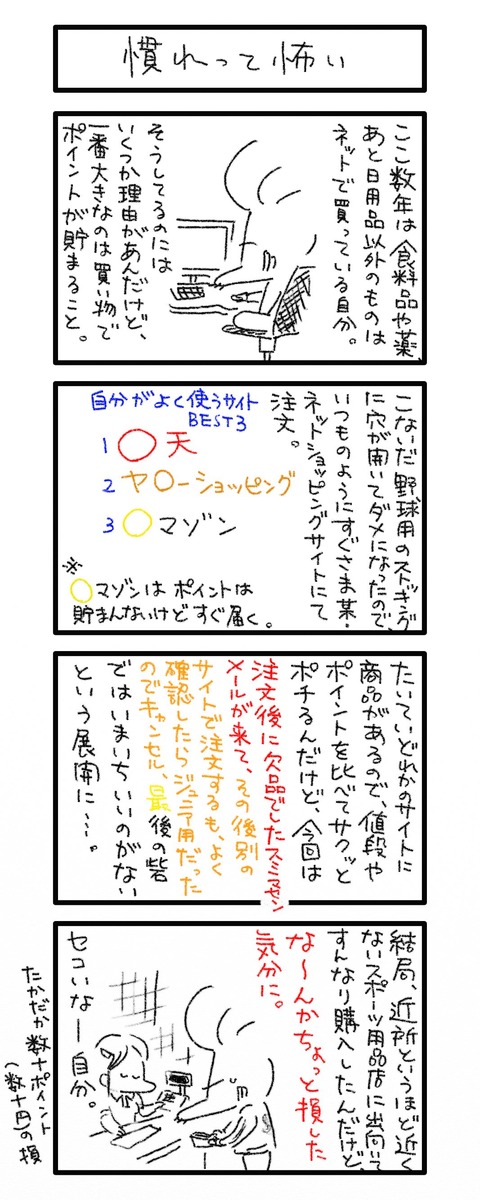 慣れって怖い
ここ数年は食料品や薬、
あと日用品以外のものは
ネットで買っている自分。
そうしてるのには
いくつか理由があんだけど、
一番大きなのは買い物で
ポイントが貯まること。
こないだ野球用のストッキング
に穴が開いてダメになったので、
いつものようにすぐさま某・
ネットショッピングサイトにて
注文。
自分がよく使うサイト
BEST3
1 〇天
2 ヤ〇ーショッピング
3 〇マゾン
※
〇マゾンは ポイントは
貯まんないけどすぐ届く。
たいていどれかのサイトに
商品があるので、値段や
ポイントを比べてサクッと
ポチるんだけど、今回は
注文後に欠品でしたスミマセン
メールが来て、その後別の
サイトで注文するも、よく
確認したらジュニア用だった
のでキャンセル、最後の砦
ではいまいちいいのがない
という展開に…。
結局、近所というほど近く
ないスポーツ用品店に出向いて
すんなり購入したんだけど、
な〜んかちょっと損した
気分に。
セコいなー自分。
たかだか数十ポイント
(数十円)の損